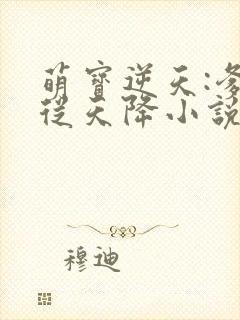 萌寶逆天:爹
從天降小說
穆迪